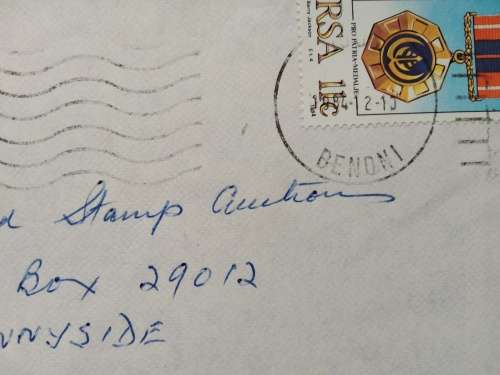 RSA 11c
PRO PATRIA-MEDALJE
BENONI
d Stamp Auctions
Box 29012
NNYSIDE